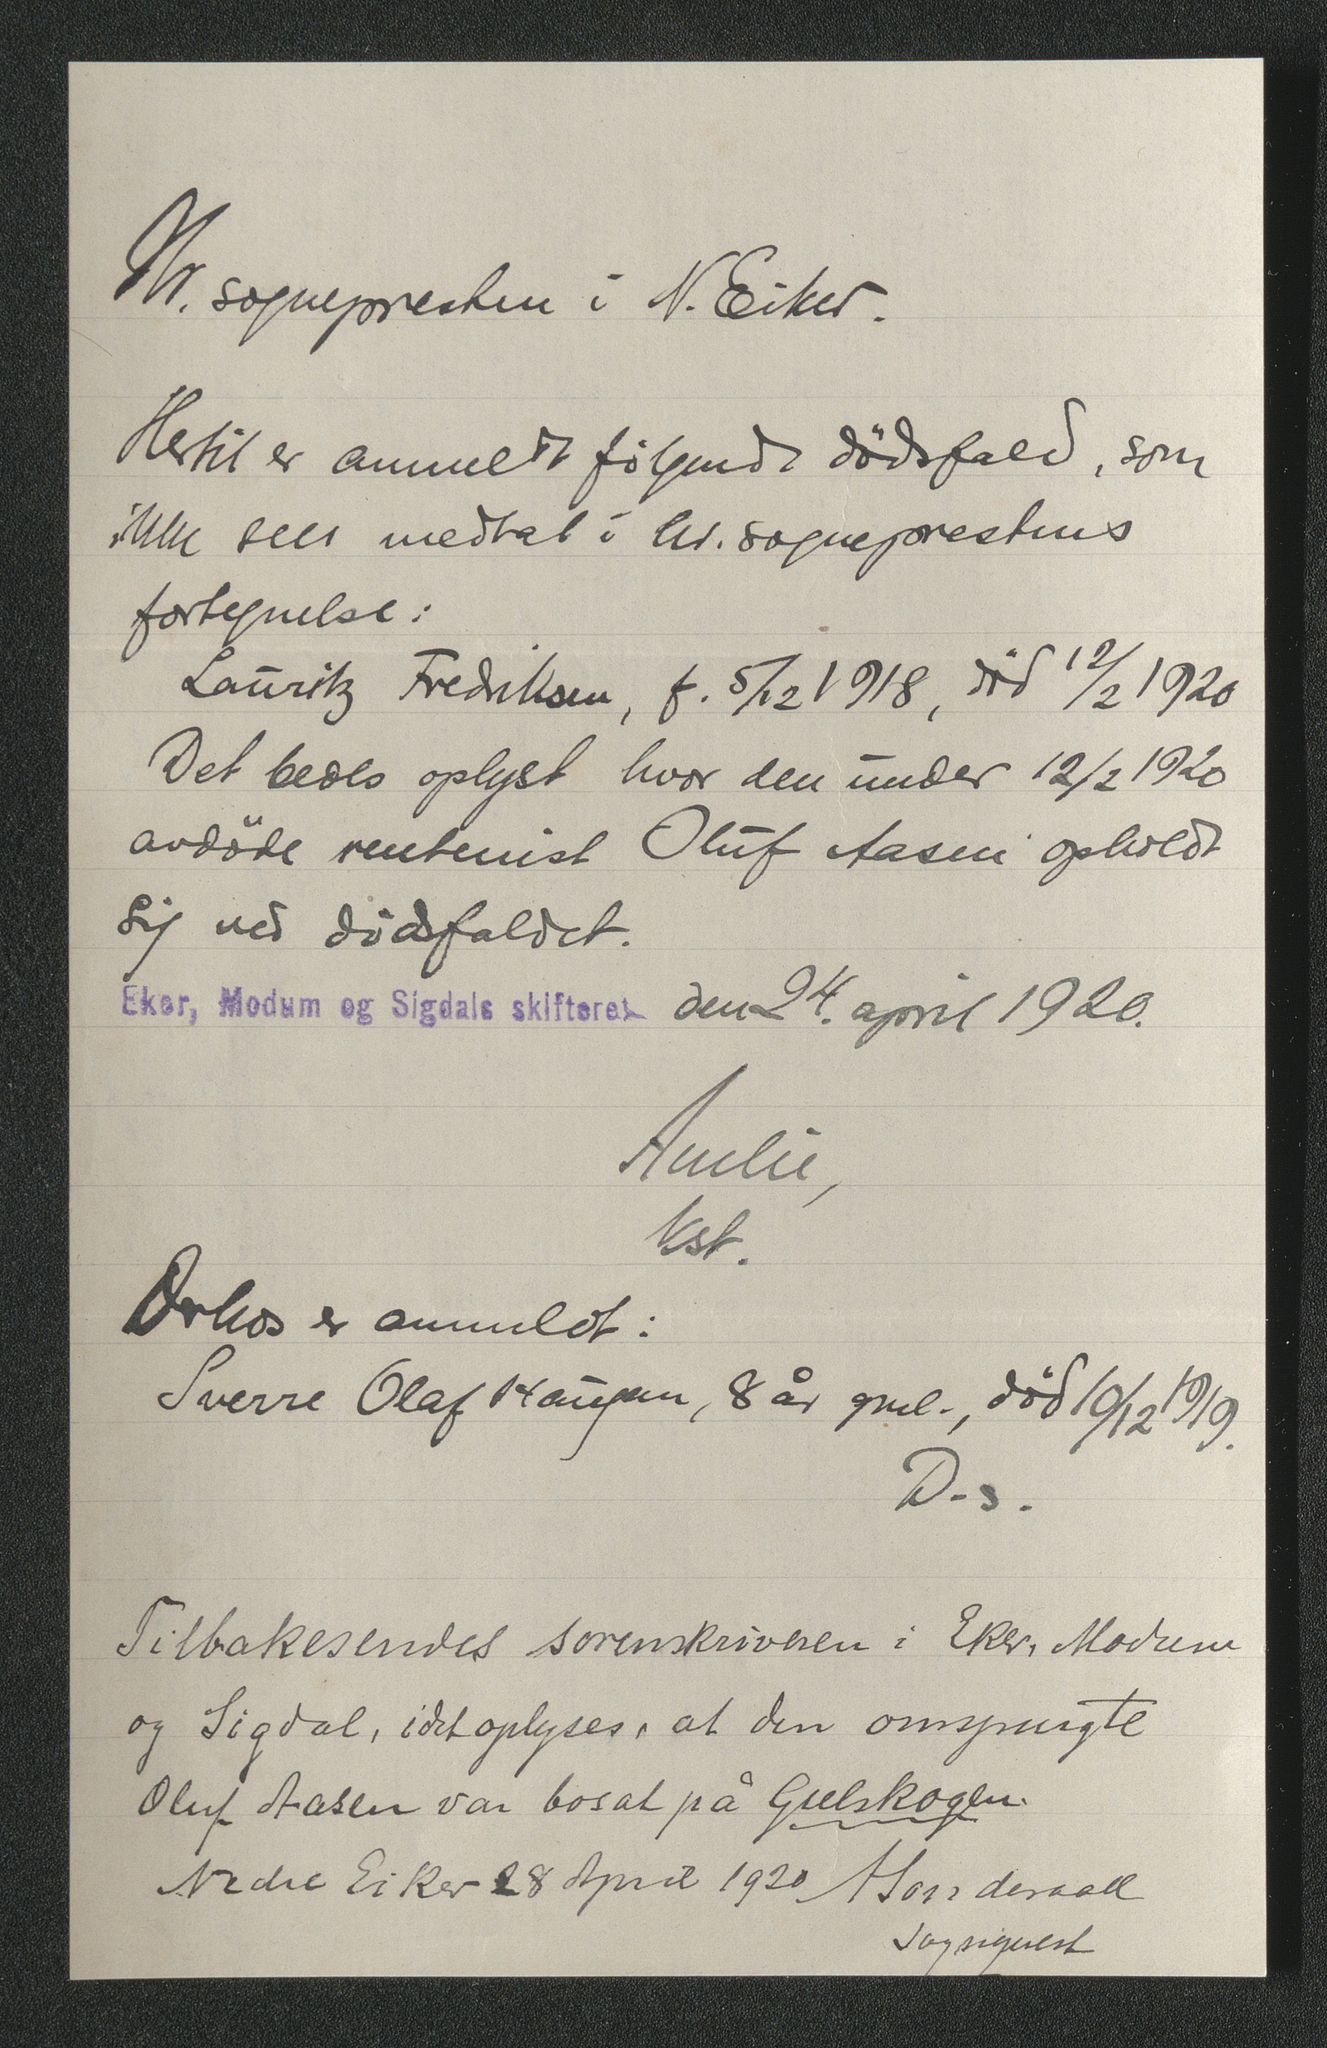 Hr. sognepresten i N. Eiker.
Hertil er anmeldt følgende dødsfald, som
ikke sees medtat i hr. sogneprestens
fortegnelse:
Lauritz Fredriksen, f. 5/12 1918, død 12/2 1920
Det bedes oplyst hvor den under 12/2 1920
avdøde rentenist Oluf Aasen opholdt
sig ved dødsfaldet.
Eker, Modum og Sigdals skifteret den 24. april 1920.
Amlie,
kst.
Derhos er anmeldt:
Sverre Olaf Haugen, 8 år gml., død 10/12 1919.
D.s.
Tilbakesendes sorenskriveren i Eker, Modum
og Sigdal, idet oplyses, at den omspurgte
Oluf Aasen var bosat på Gulskogen.
Nedre Eiker 28 April 1920
sogneprest